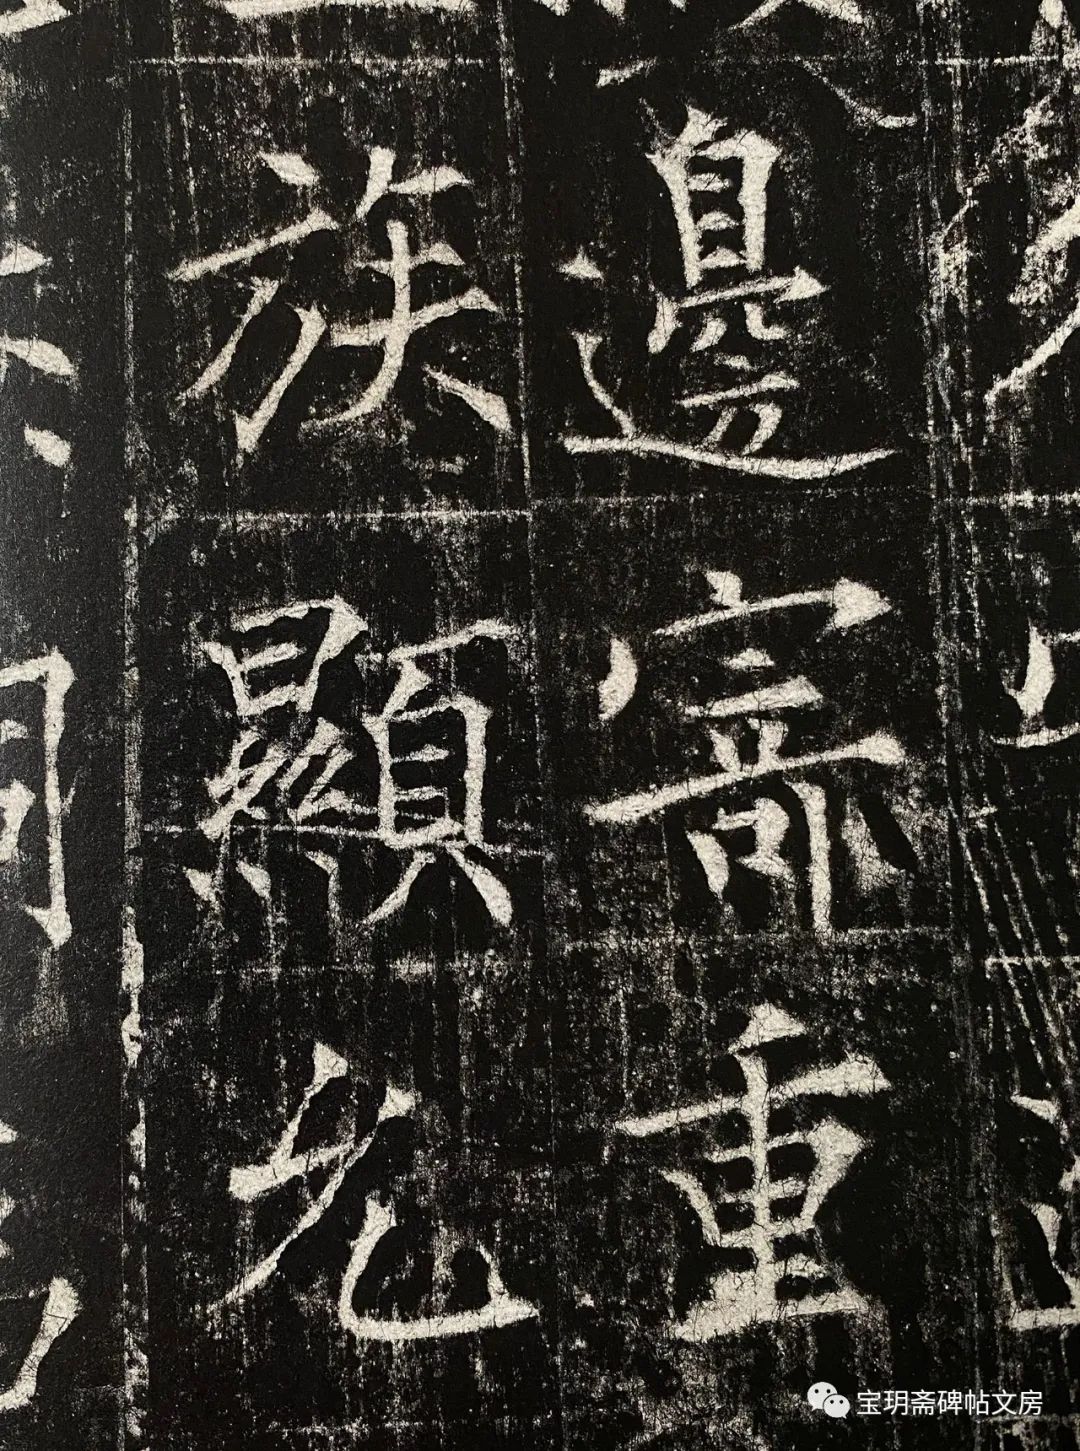 邊寄重
族顯允
宝玥斋碑帖文房